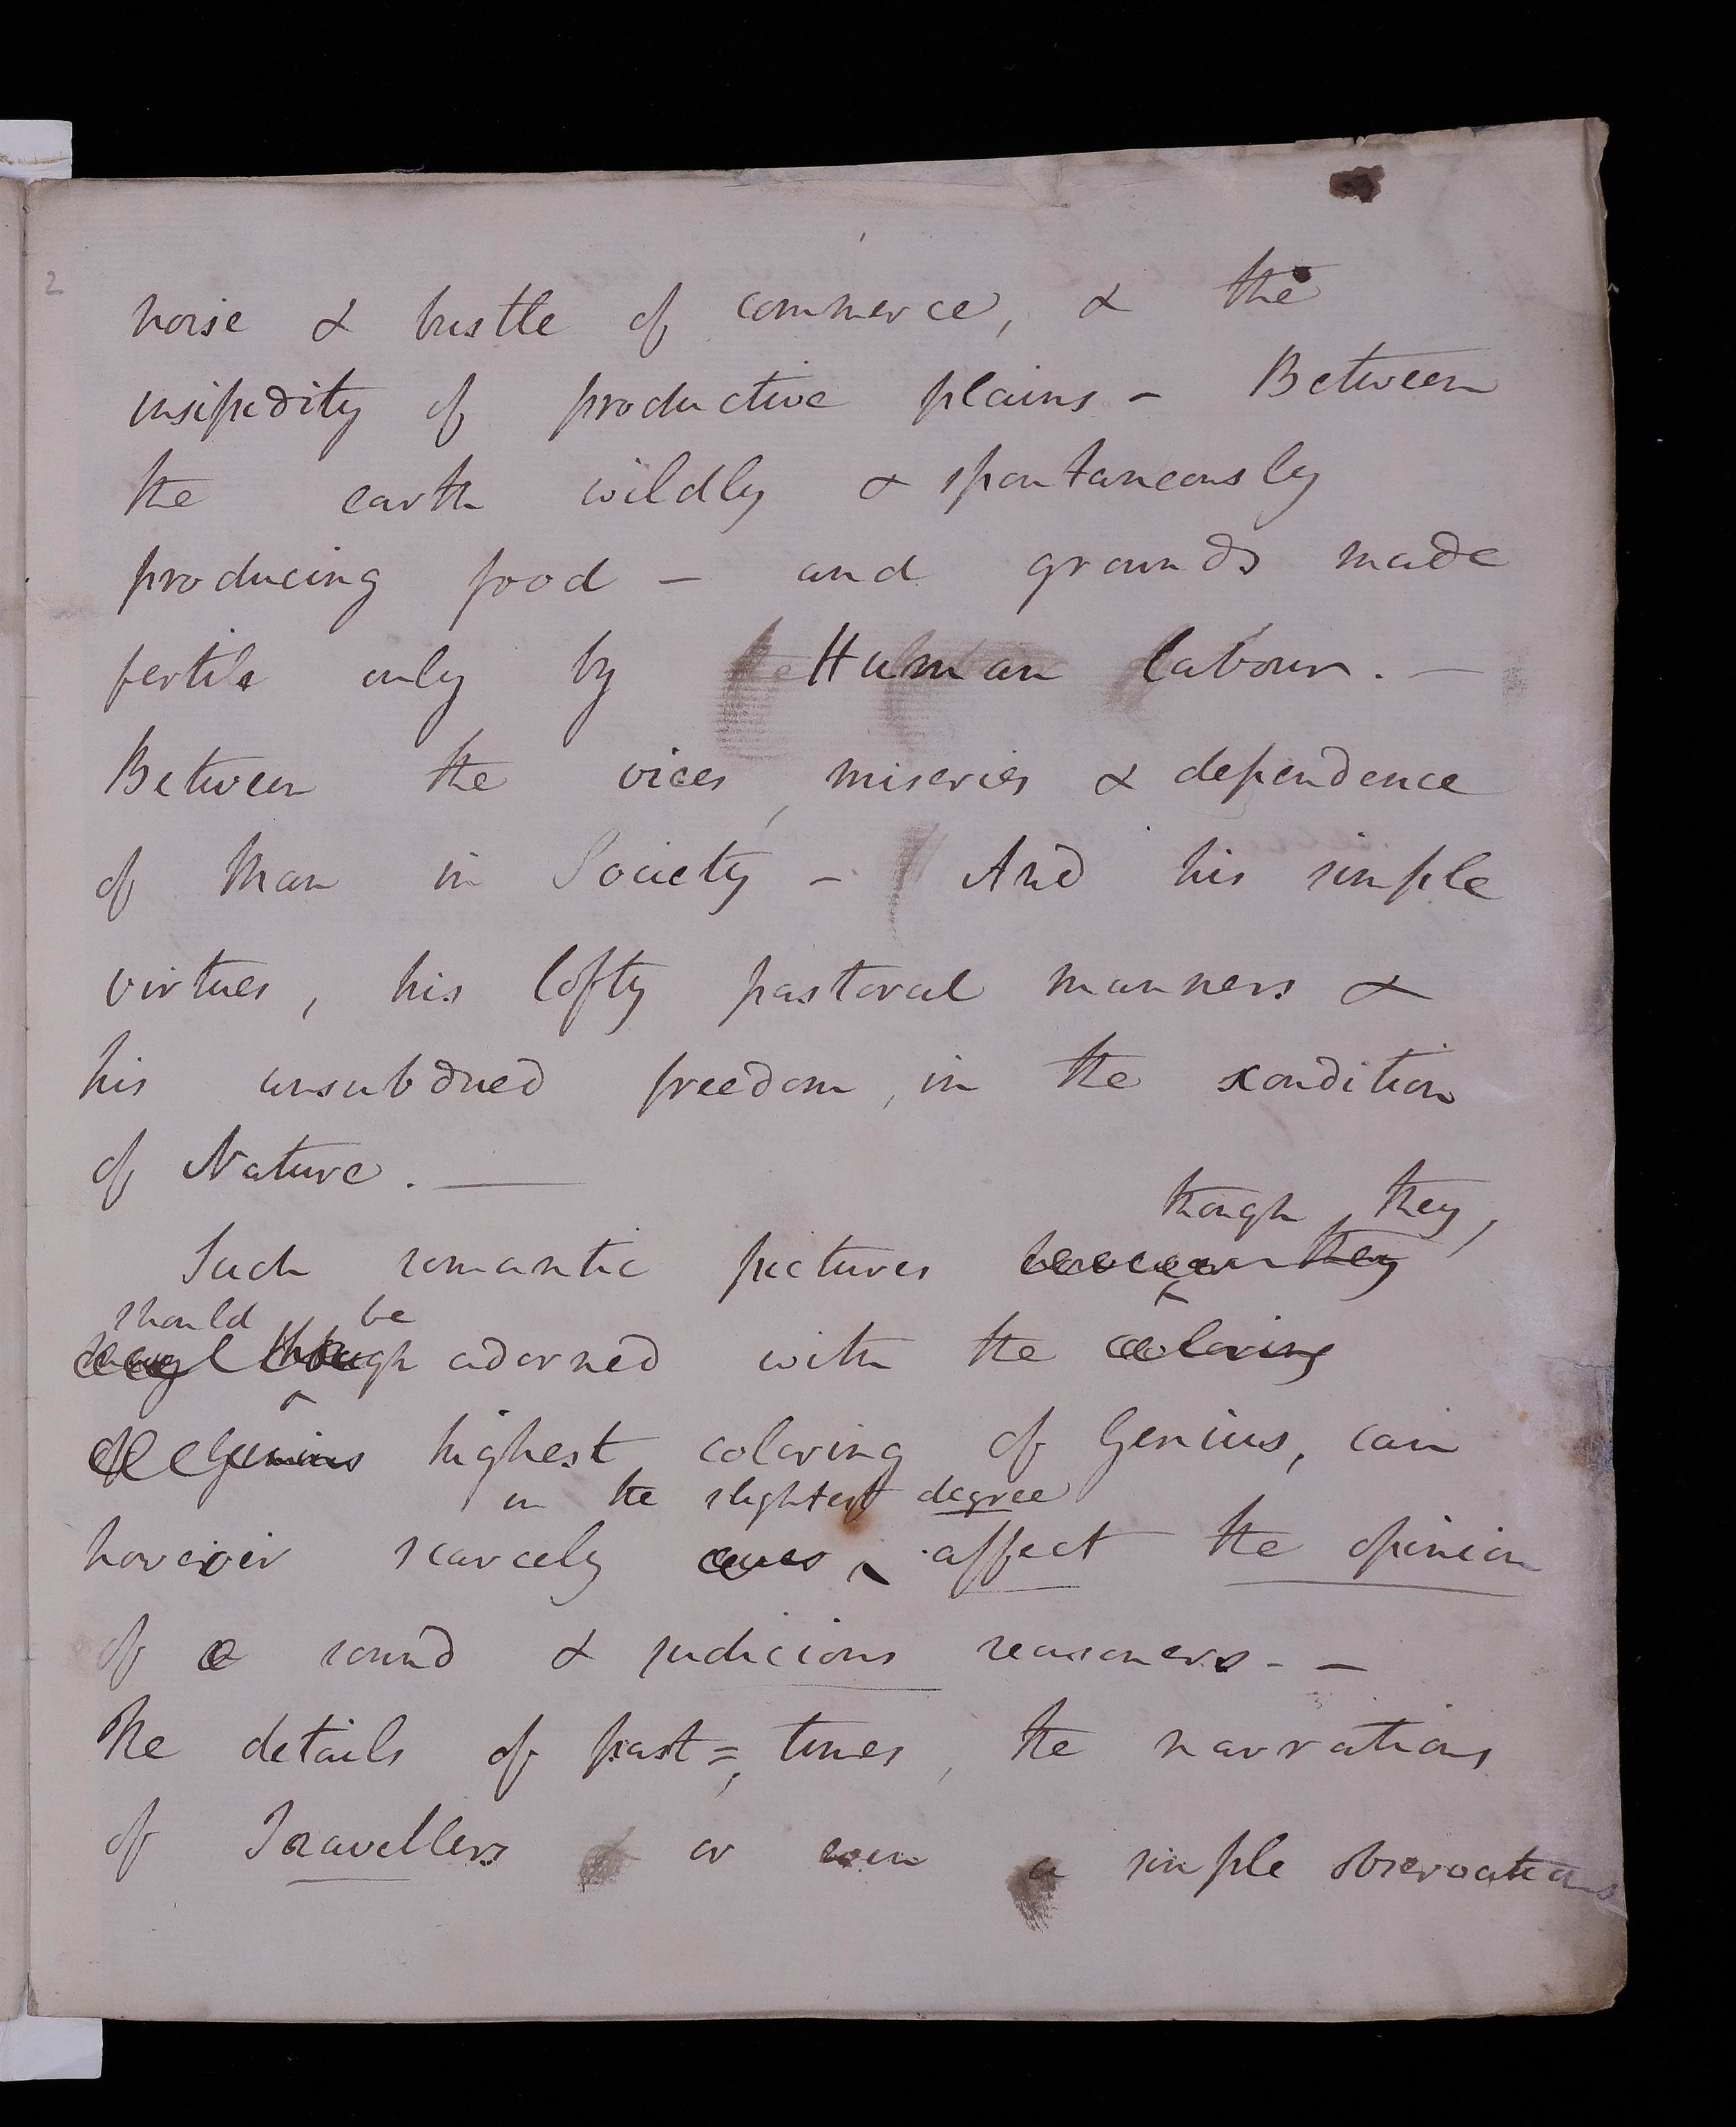 2
noise & bustle of commerce, & the
insipidity of productive plains - Between
the earth wildly & spontaneously
producing food - and grounds made
fertile only by Human labour. -
Between the vices, miseries & dependence
of Man in Society - And his simple
virtues, his lofty pastoral manners &
his unsubdued freedom, in the condition
of Nature. -
though they,
Such romantic pictures they
should be
though adorned with the coloring
of Genius highest coloring of Genius, can
in the slightest degree
however scarcely affect the opinion
of a sound & judicious reasoners - -
The details of past =, times, the narrations
of Travellers or even a simple observations